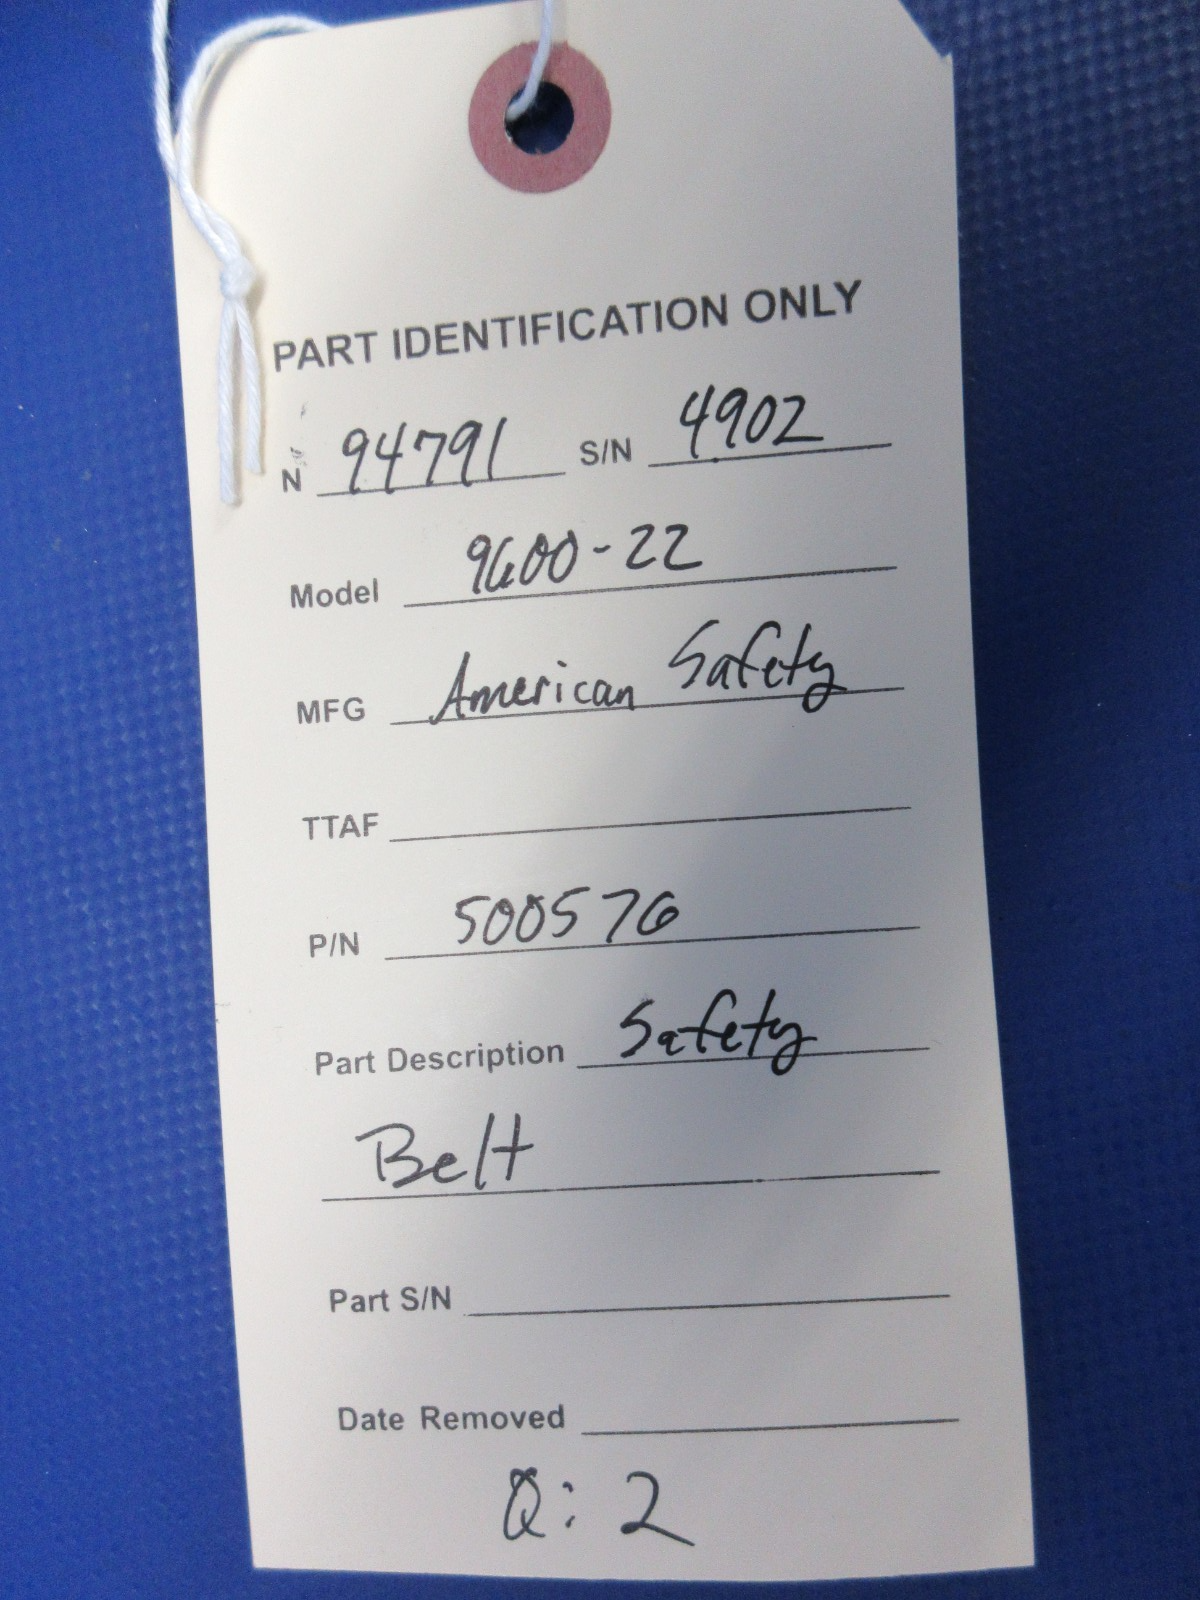 PART IDENTIFICATION ONLY
N 94791 S/N 4902
Model 9600-22
MFG American Safety
TTAF
P/N 500576
Part Description Safety
Belt
Part S/N
Date Removed
Q: 2